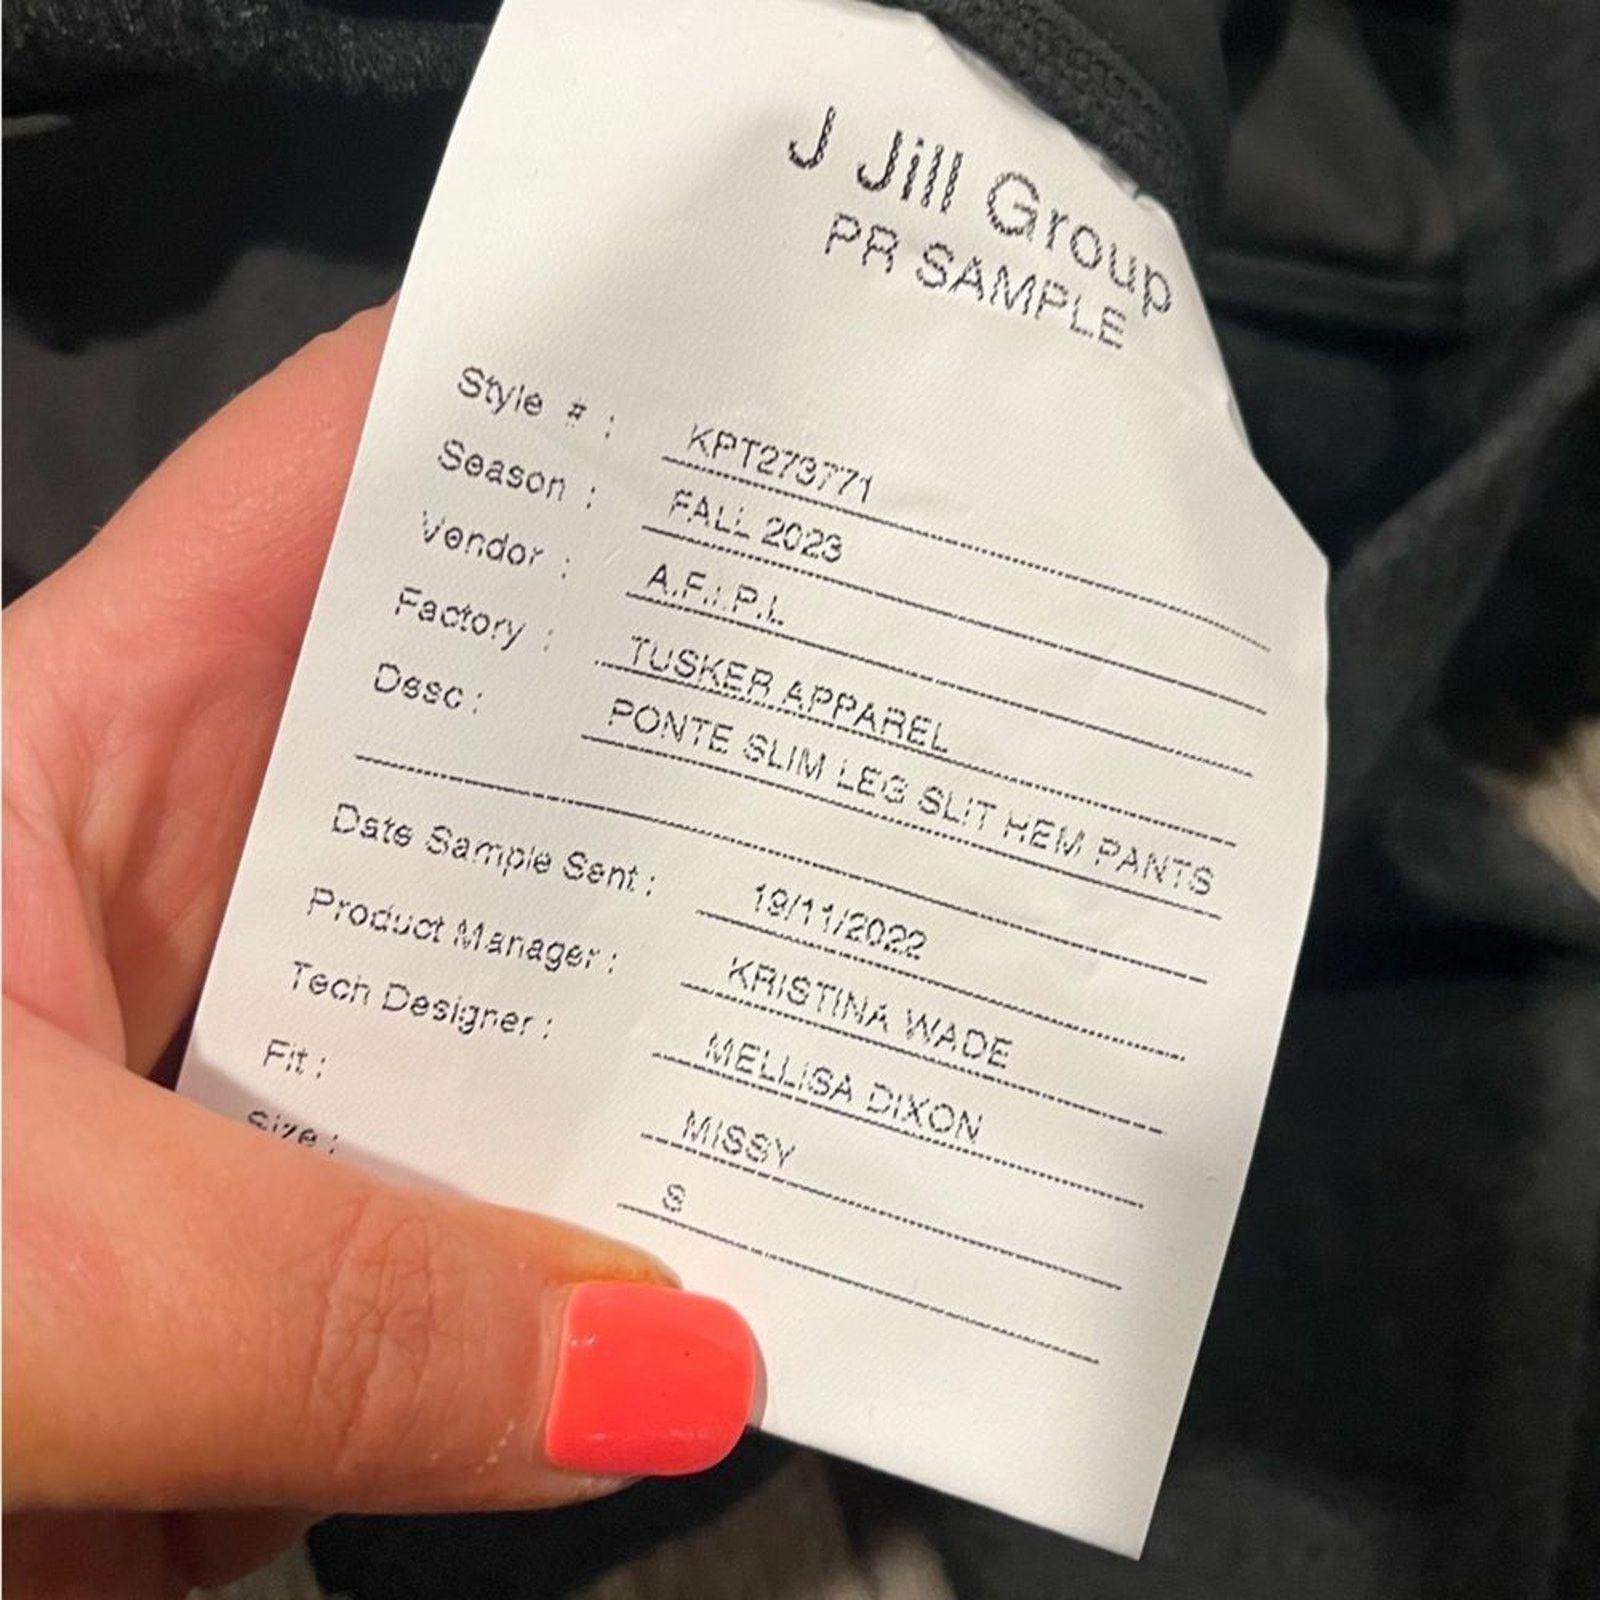 J Jill Group
PR SAMPLE
Style # : KPT273771
Season : FALL 2023
Vendor : A.F.I.P.L.
Factory : TUSKER APPAREL
Desc : PONTE SLIM LEG SLIT HEM PANTS
Date Sample Sent : 19/11/2022
Product Manager : KRISTINA WADE
Tech Designer : MELLISA DIXON
Fit : MISSY
Size : S